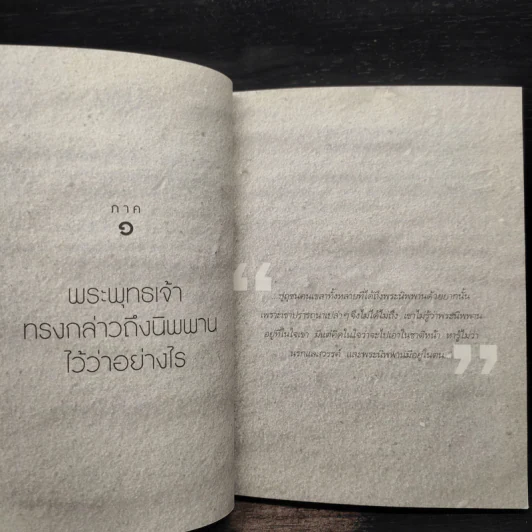 ภาค
๑
พระพุทธเจ้า
ทรงกล่าวถึงนิพพาน
ไว้ว่าอย่างไร
“
ปุถุชนคนเขลาทั้งหลายที่ได้ถึงพระนิพพานด้วยยากนั้น
เพราะเขาปรารถนาเปล่าๆ จึงไม่ได้ไม่ถึง เขาไม่รู้ว่าพระนิพพาน
อยู่ที่ในใจเขา มีแต่คิดในใจว่าจะไปเอาในชาติหน้า หารู้ไม่ว่า
นรกและสวรรค์ และพระนิพพานมีอยู่ในตน
”